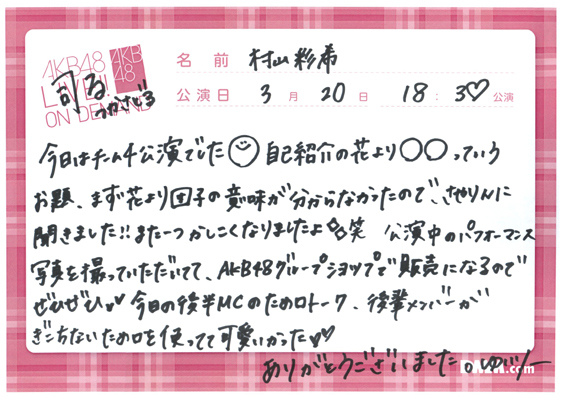 AKB48
LIVE!!
ON DEMAND
AKB
48
司る
つかさどる
名前 村山彩希
公演日 3月20日 18:30公演
今日はチーム4公演でした 自己紹介の花より〇〇っていう
お題、まず花より団子の意味が分からなかったので、さやりんに
聞きました!!また一つかしこくなりましたよ 笑 公演中のパフォーマンス
写真を撮っていただいてて、AKB48グループショップで販売になるので
ぜひぜひ♡ 今日の後半MCのためロトーク、後輩メンバーが
ぎこちないためロを使ってて可愛いかった♡
ありがとうございました。ゆいりー
DMM.com